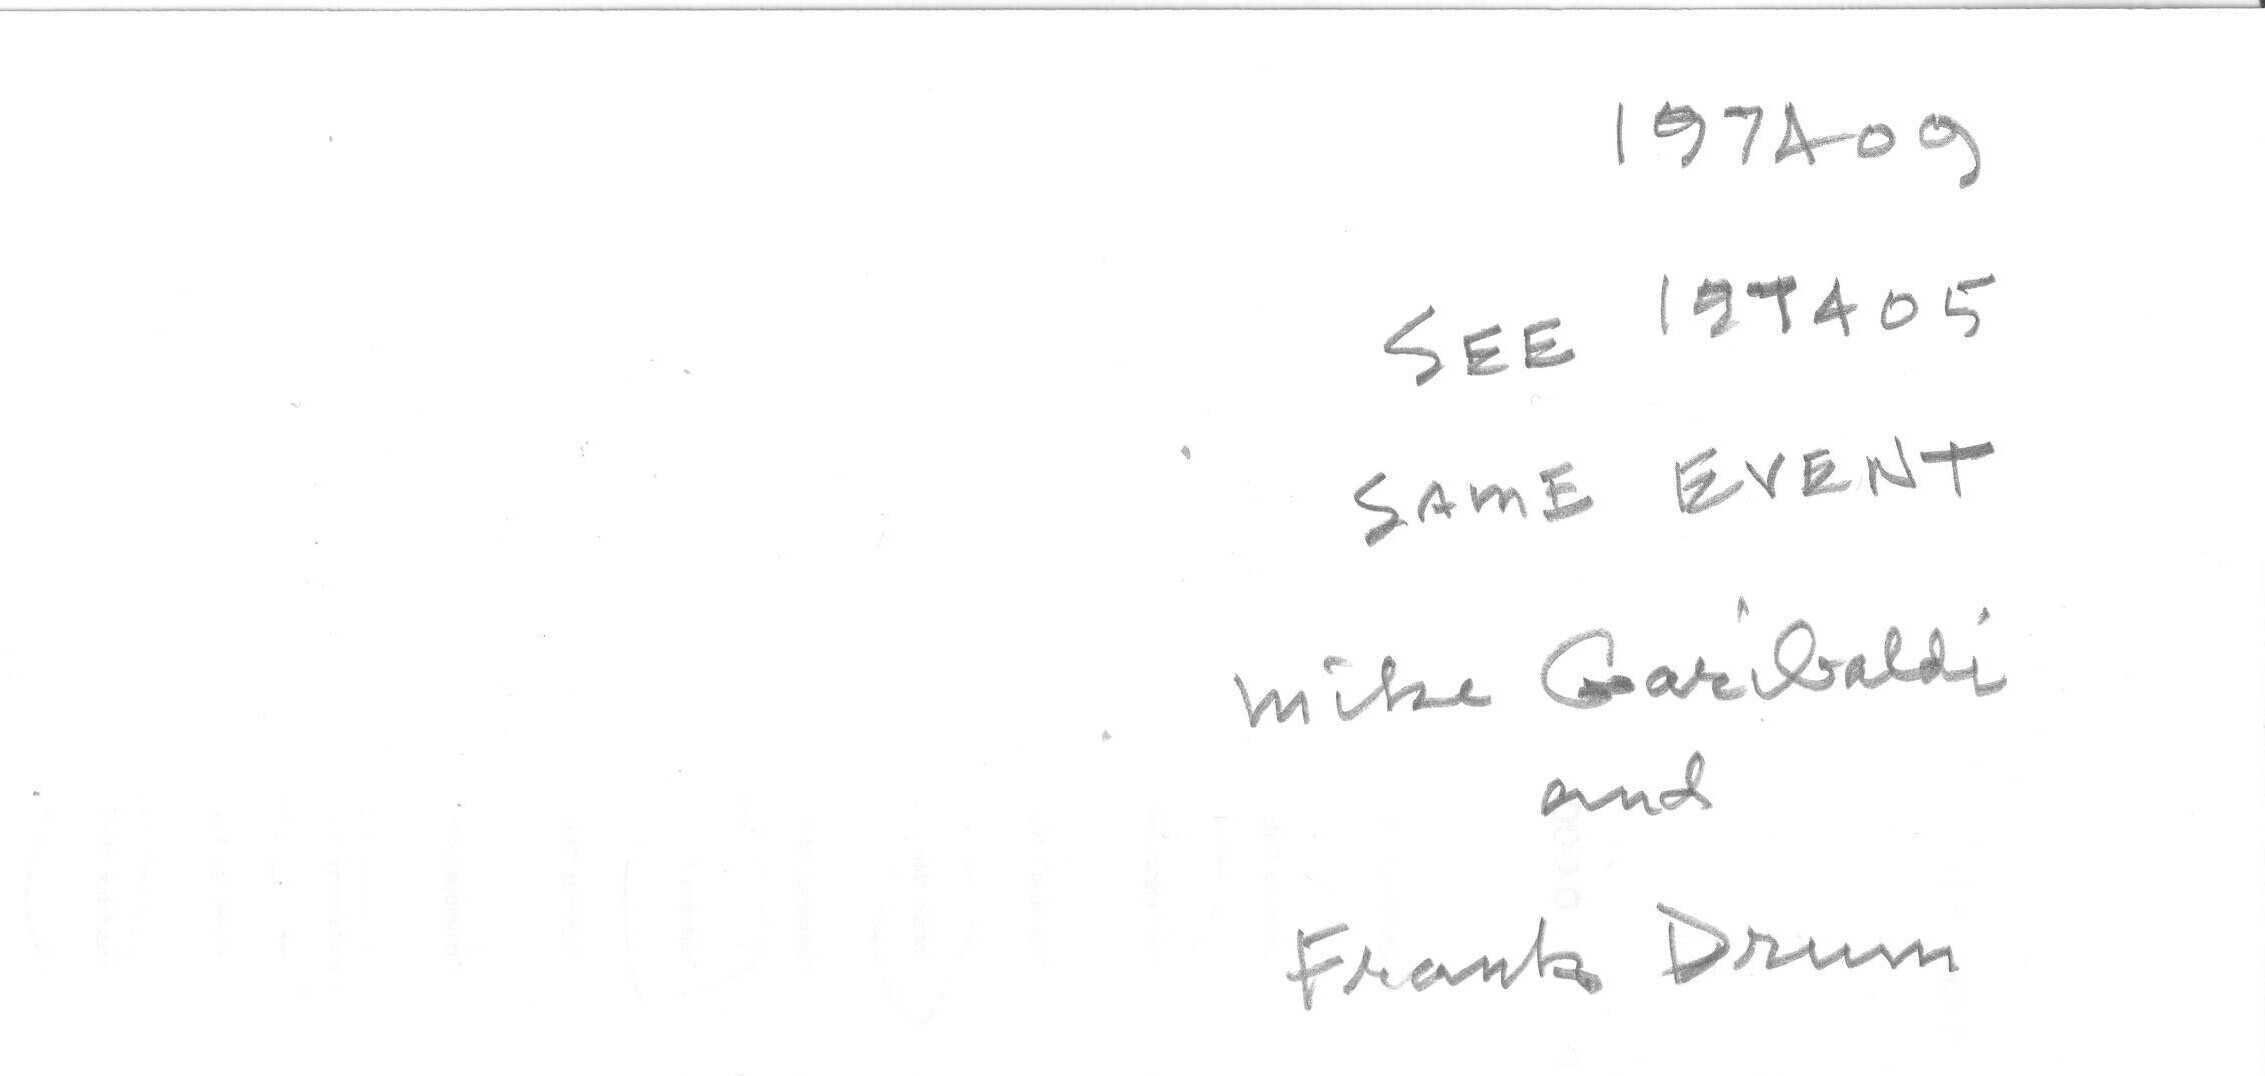 197409
SEE 197405
SAME EVENT
Mike Garibaldi
and
Frank Drum